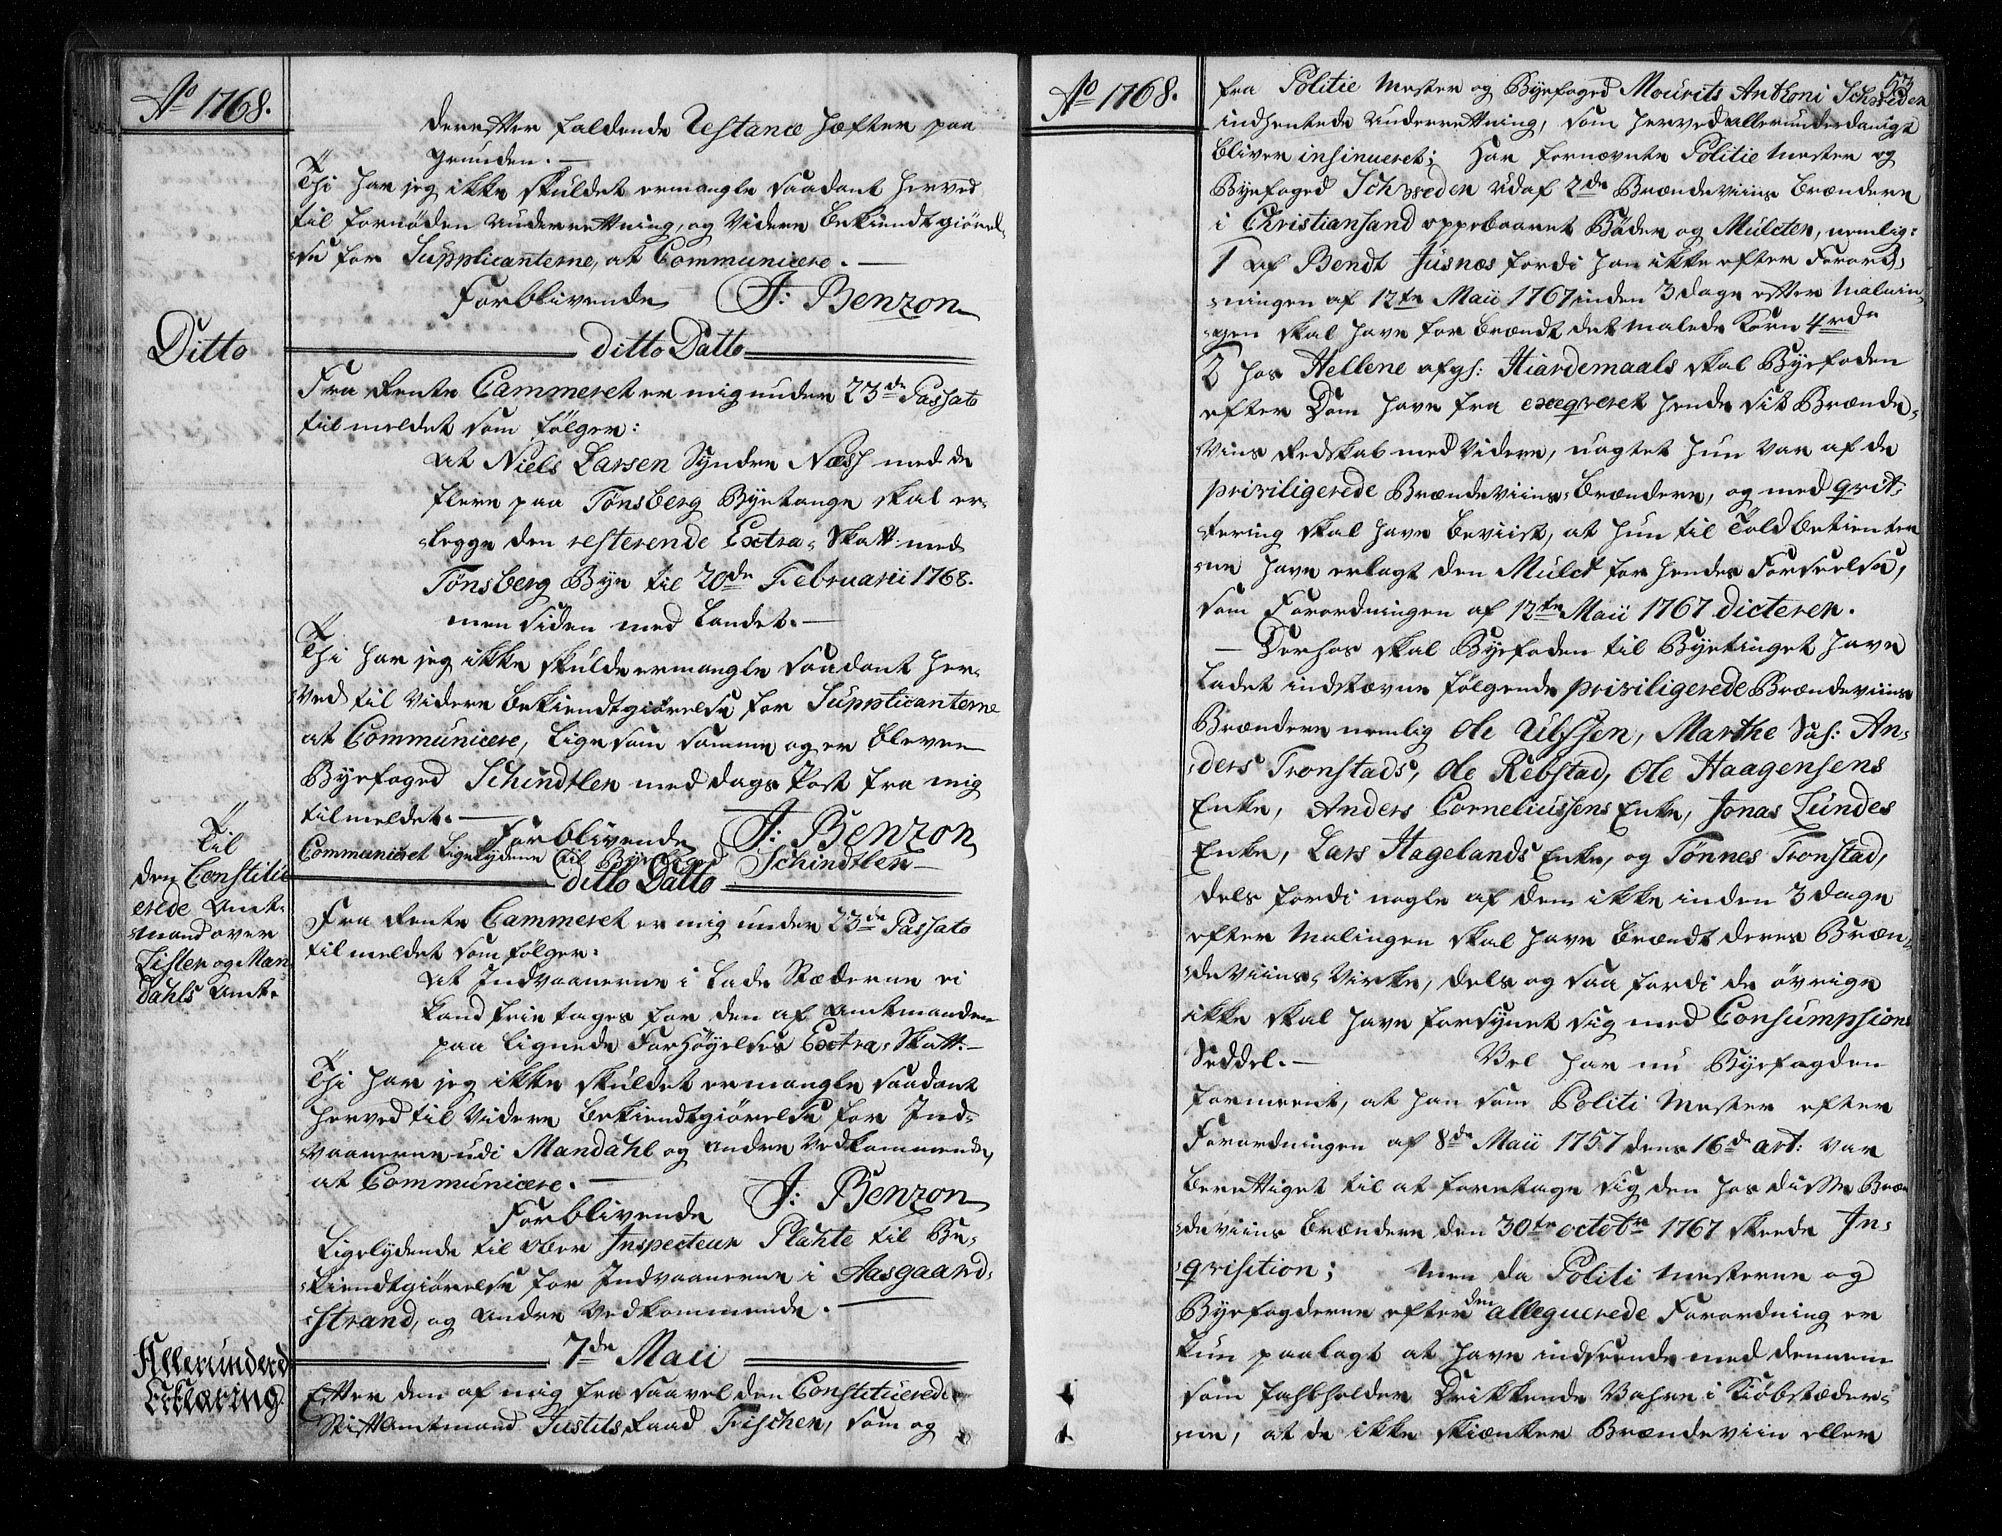 Ao 1768.
derefter faldende Restance hæfter paa
grunden. —
Thi har jeg ikke skuldet ermangle saadant herved
til fornøden underrettning, og videre bekiendtgiørel-
se for Supplicanterne, at Communicere. —
Forblivende J: Benzon
Ditto
ditto Datto
Fra Rente Cammeret er mig under 23de Passato
tilmeldet som følger:
at Niels Larsen Syndre Næss med de
flere paa Tønsberg Byetange skal er-
legge den resterende Extra-Skatt med
Tønsberg Bye til 20de Februarii 1768.
men siden med Landet. —
Thi har jeg ikke skulde ermangle saadant her-
ved til videre bekiendtgiørelse for Supplicanterne
at Communicere, ligesom samme og er bleven
Byefoged Schindtler med dags Post fra mig
tilmeldet. —
Forblivende J: Benzon
Communicet ligelydene til Byefoged Schindtler
Til
den Constitu-
erede Amt-
mand over
Lister og Man-
dahls Amt.
ditto Datto
Fra Rente Cammeret er mig under 23de Passato
tilmeldet som følger:
at Indvaanerne i Lade Stæderne ei
kand frietages for den af Amtmanden
paa lignede Forhøyelses Extra-Skatt. —
Thi har jeg ikke skuldet ermangle saadant
herved til videre bekiendtgiørelse for Ind-
vaanerne udi Mandahl og andre vedkommende,
at Communicere. —
Forblivende J: Benzon
Ligelydende til Ober Inspecteur Plahte til Be-
kiendtgiørelse for Indvaanerne i Aasgaard-
strand, og andre vedkommende. —
Allerunderd
Erklæring
7de Maii
Efter den af mig fra saavel den Constituerede
Stiftamtmand Justits Raad Fischer, som og
Ao 1768.
53
fra Politie Mester og Byefoged Mourits Anthoni Schweden
indhentede underrettning, som herved allerunderdanigst
bliver insinueret; har fornævnte Politie Mester og
Byefoged Schweden udaf 2de Brændeviins Brændere
i Christiansand oppebaaret Bøder og Mulcter, nemlig:
1 af Bendt Jusnæs fordi han ikke efter Forord-
ningen af 12te Maii 1767 inden 3 dage efter Malnin-
gen skal have for brændt det malede Korn 4 rd
2 hos Hellene afg: Hiardemaals skal Byefoden
efter Dom have fra exeqveret hende sit Brænde-
viins Redskab med videre, uagtet hun var af de
priviligerede Brændeviins-Brændere, og med qvit-
tering skal have beviist, at hun til Toldbetienter-
ne have erlagt den Mulct for hendes Forseelse,
som Forordningen af 12te Maii 1767 dicterer.
— Derhos skal Byefoden til Byetinget have
ladet indstævne følgende priviligerede Brændeviins
Brændere nemlig Ole Ulssen, Marthe Sal: An-
ders Tronstads, Ole Rebstad, Ole Haagensens
Enke, Anders Corneliussens Enke, Jonas Lundes
Enke, Lars Hagelands Enke, og Tønnes Tronstad,
dels fordi nogle af dem ikke inden 3 dage
efter Malingen skal have brændt deres Bræn-
deviins-Virke, dels og saa fordi de øvrige
ikke skal have forsynet sig med Consumpsions
Seddel. — Vel har nu Byefogden
formeent, at han som Politi Mester efter
Forordningen af 8de Maii 1757 dens 16de art: var
berettiget til at foretage sig den hos disse Bræn-
deviins Brændere den 30te octobr 1767 skeede In-
qvisition; men da Politi Mesterne og
Byefogderne efter den allegverede Forordning er
kun paalagt at have indseende med dennem
som falholder drikkende Vahre i Kiøbstæder-
ne, at de ikke skiænker Brændeviin eller